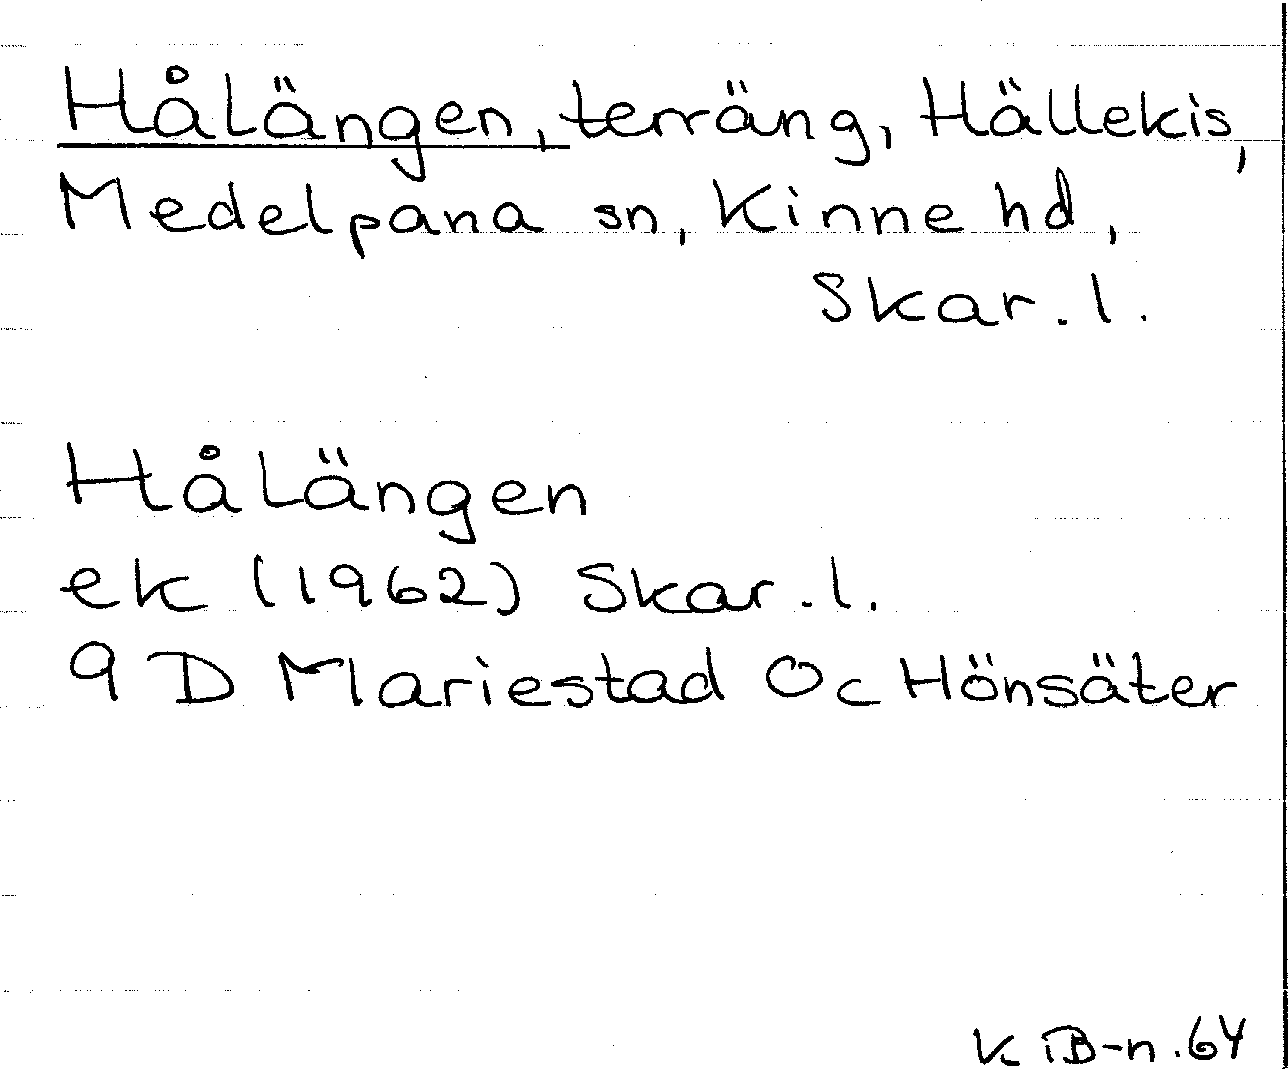 Hålängen, terräng, Hällekis,
Medelpana sn, Kinne hd,
Skar. l.
Hålängen
ek (1962) Skar. l.
9 D Mariestad Oc Hönsäter
K iB-n. 64